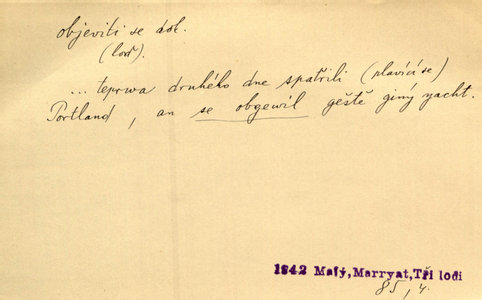 objeviti se dok.
(loď).
... teprwa druhého dne spatřili (plavící se)
Portland, an se obgewil geště giný yacht.
1842 Malý,Marryat,Tři lodi
85, 4.